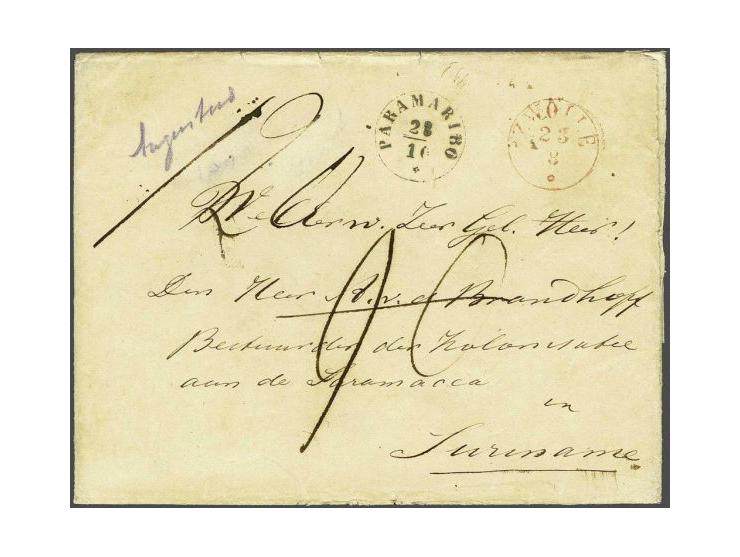 PARAMARIBO
28
10
ZWOLLE
23
8
Zeer Gel. Heer!
Den Heer A. v. d. Brandhoff
Bestuurder der Kolonisatie
aan de Saramacca
in
Suriname